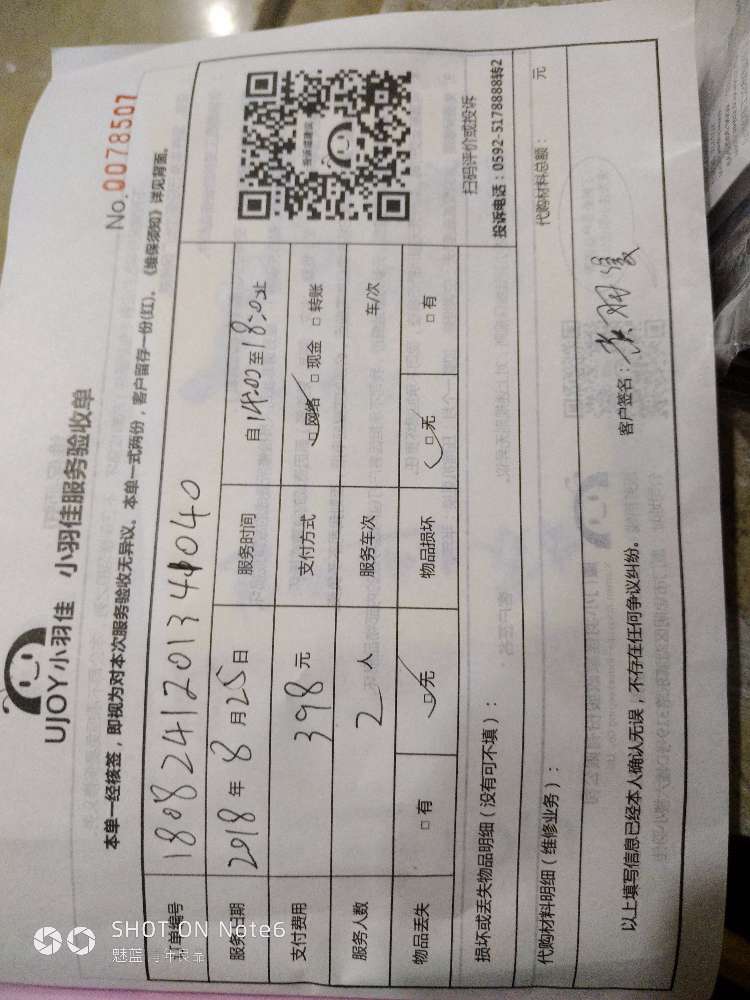 UJOY小羽佳 小羽佳服务验收单
No. 0078507
本单一经核签，即视为对本次服务验收无异议。本单一式两份，客户留存一份(红)。《维保须知》详见背面。
订单编号 1808241201341040
服务日期 2018年8月25日 服务时间 自14:00至18:00止
支付费用 398元 支付方式 □网络 □现金 □转账
服务人数 2人 服务车次 车/次
物品丢失 □有 □无 物品损坏 □无 □有
扫码评价或投诉
投诉电话：0592-5178888转2
损坏或丢失物品明细（没有可不填）：
代购材料明细（维修业务）： 代购材料总额： 元
以上填写信息已经本人确认无误，不存在任何争议纠纷。 客户签名：
SHOT ON Note6
魅蓝